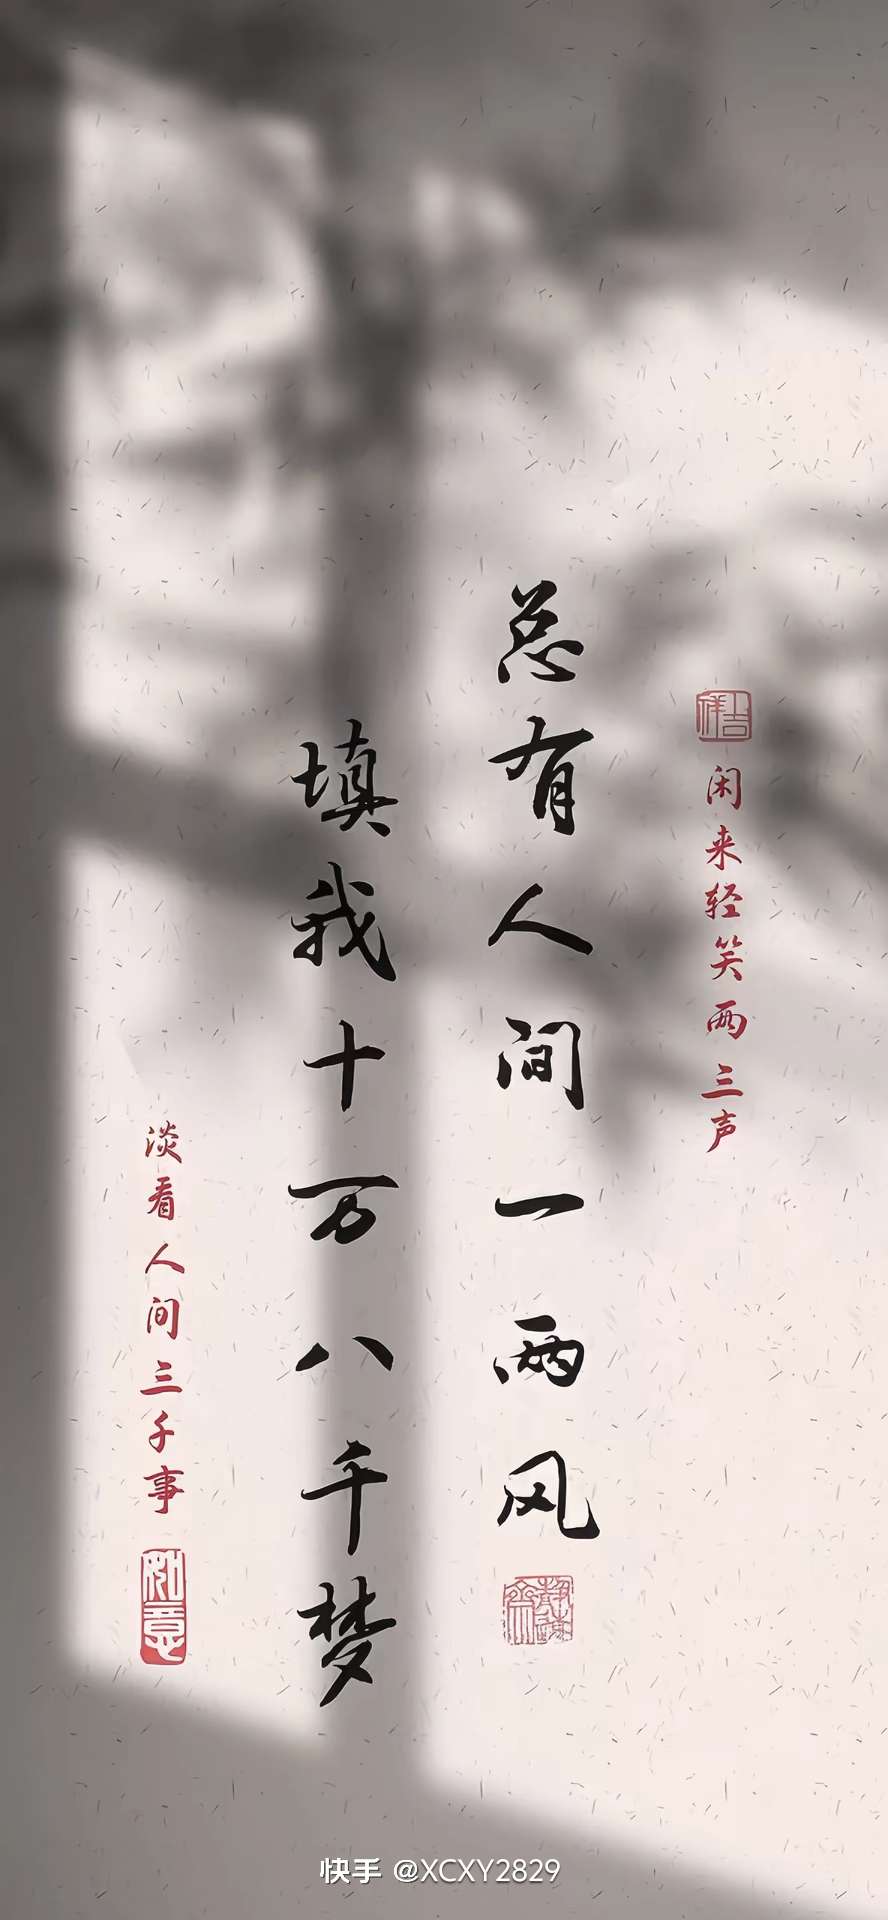 吉祥
闲来轻笑两三声
总有人间一两风
填我十万八千梦
淡看人间三千事
如意
快手 @XCXY2829